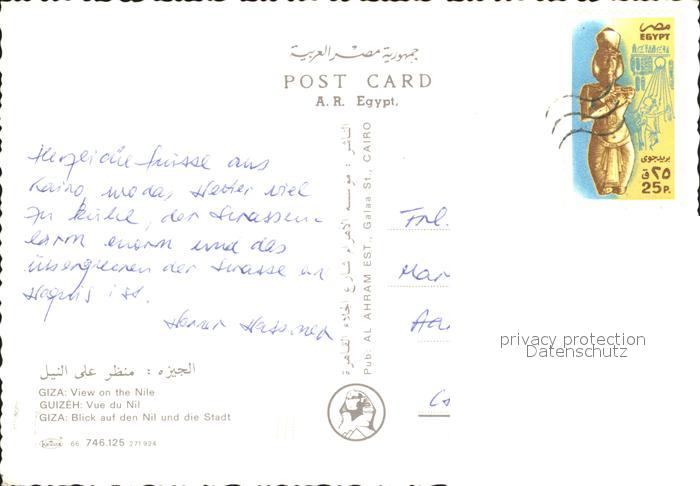 جمهورية مصر العربية
POST CARD
A. R. Egypt.
مصر
EGYPT
بريد جوى
٢٥ ق
25 P.
Herzliche Grüsse aus
Kairo, wo das Wetter viel
zu kühl, der Strassen-
lärm enorm und das
überqueren der Strasse ein
Wagnis ist.
الناشر : مؤسسة الاهرام شارع الجلاء القاهرة
Pub: AL AHRAM EST., Galaa St., CAIRO
Frl.
Mar
الجيزه : منظر على النيل
GIZA: View on the Nile
GUIZÉH: Vue du Nil
GIZA: Blick auf den Nil und die Stadt
66. 746.125 271 924
privacy protection
Datenschutz